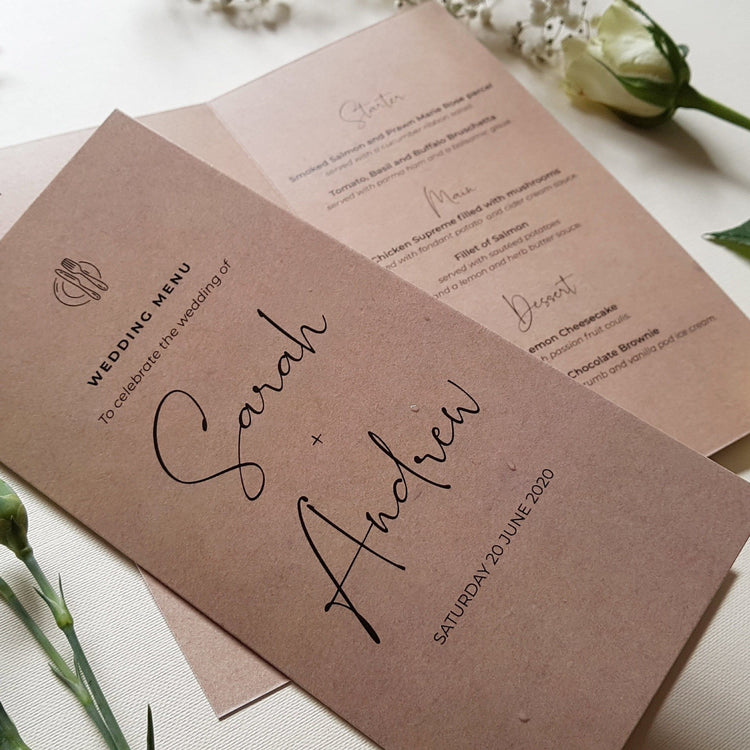 WEDDING MENU
To celebrate the wedding of
Sarah
+
Andrew
SATURDAY 20 JUNE 2020
Starter
Smoked Salmon and Prawn Marie Rose parcel
served with a cucumber ribbon salad.
Tomato, Basil and Buffalo Bruschetta
served with parma ham and a balsamic glaze.
Main
Chicken Supreme filled with mushrooms
with fondant potato and cider cream sauce.
Fillet of Salmon
served with sautéed potatoes
and a lemon and herb butter sauce.
Dessert
Cheesecake
passion fruit coulis.
Chocolate Brownie
and vanilla pod ice cream.